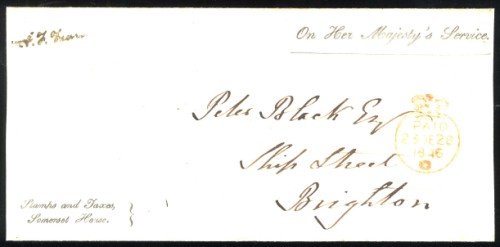 On Her Majesty's Service,
Peter Black Esq
PAID
DE 26
1846
Ship Street
Brighton
Stamps and Taxes,
Somerset House.